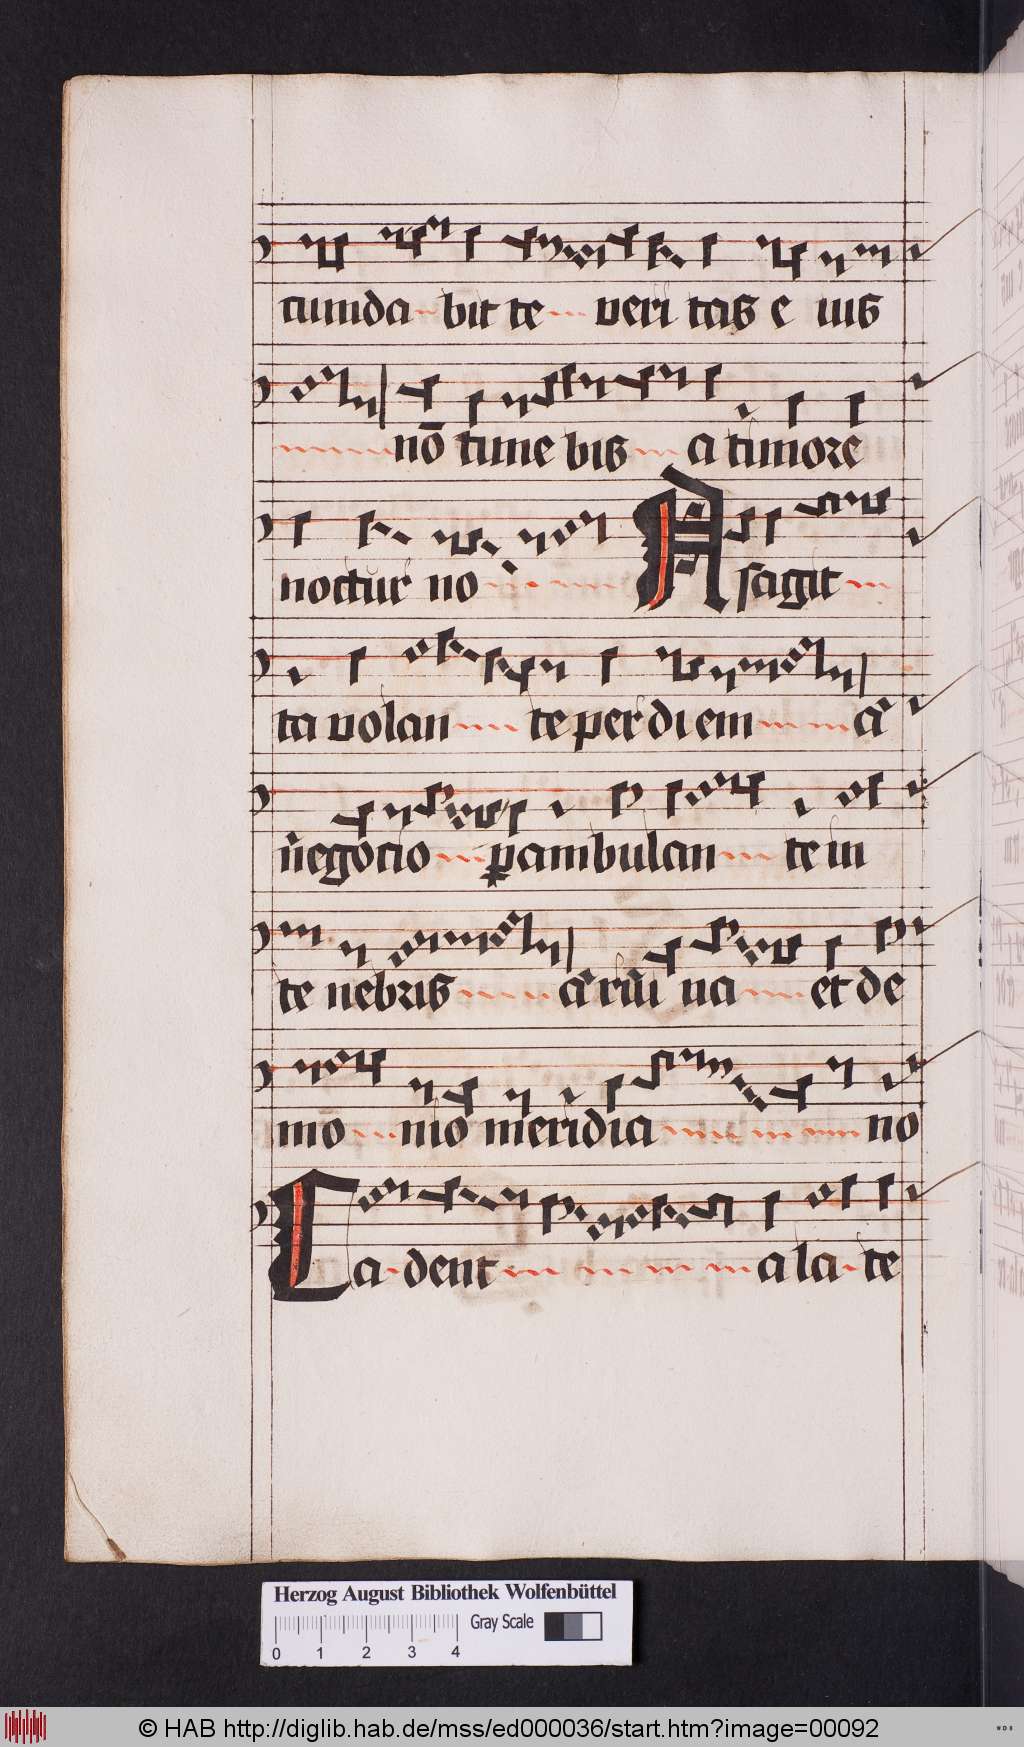 cumda bit te veri tas e ius
nō time bis a timore
noctur no A sagit
ta volan te per diem a͂
n̄egocio ꝑambulan te in
te nebris a͂ rūi na et de
mo nio meridia no
Ca dent a la te
Herzog August Bibliothek Wolfenbüttel
Gray Scale
0 1 2 3 4
© HAB http://diglib.hab.de/mss/ed000036/start.htm?image=00092